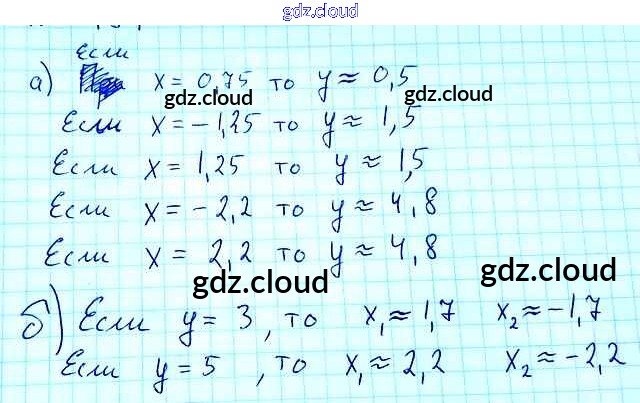 gdz.cloud
Если
а) x = 0,75 то y ≈ 0,5
gdz.cloud gdz.cloud
Если x = -1,25 то y ≈ 1,5
Если x = 1,25 то y ≈ 1,5
Если x = -2,2 то y ≈ 4,8
Если x = 2,2 то y ≈ 4,8
gdz.cloud gdz.cloud
б) Если y = 3, то x₁ ≈ 1,7 x₂ ≈ -1,7
Если y = 5, то x₁ ≈ 2,2 x₂ ≈ -2,2